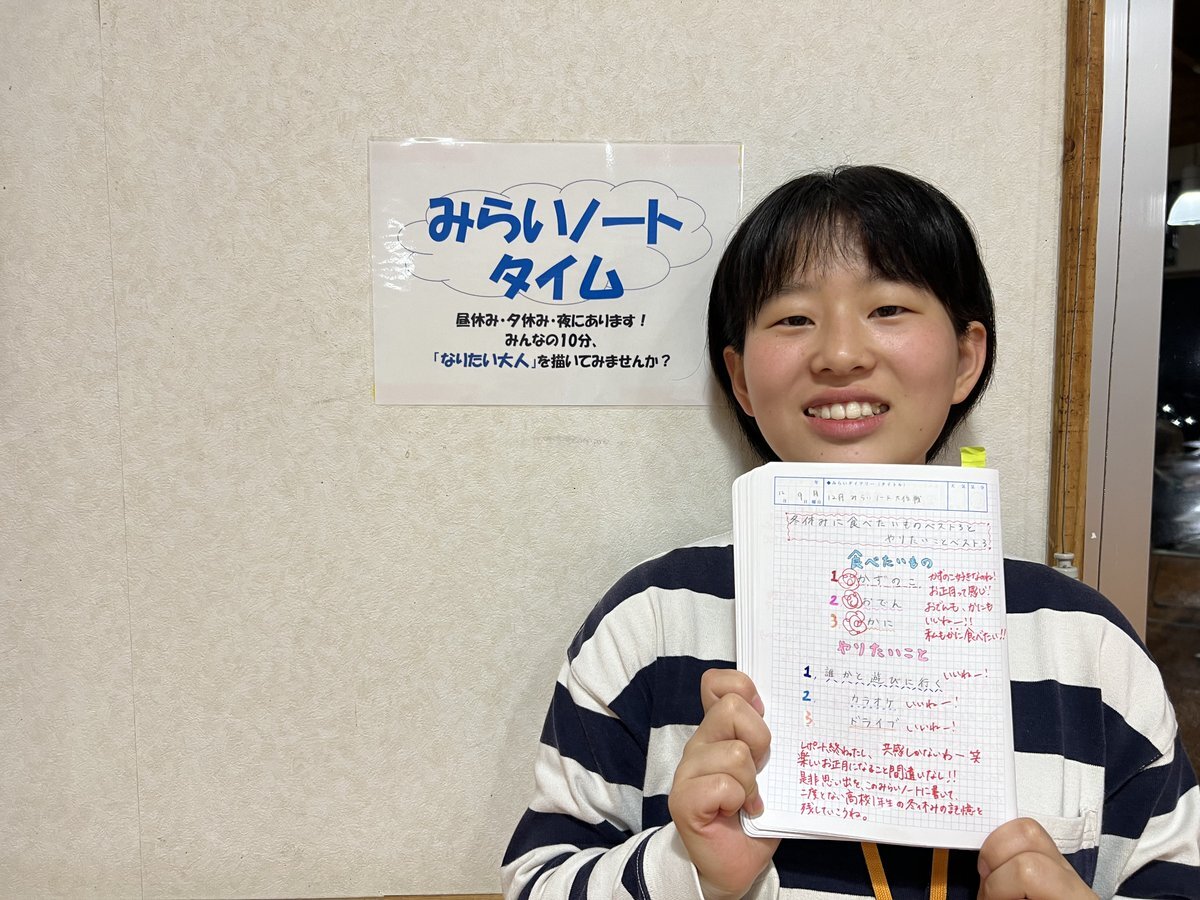 みらいノート
タイム
昼休み・夕休み・夜にあります！
みんなの10分、
「なりたい大人」を描いてみませんか？
◆みらいダイアリー（タイトル）
12月 9日 月曜日 12月 みらいノート大作戦
冬休みに食べたいものベスト3と
やりたいことベスト3
食べたいもの
1 かずのこ かずのこ好きなのね！
お正月って感じ！
2 おでん おでんも、かにも
3 かに いいねー！！
私もかに食べたい！！
やりたいこと
1. 誰かと遊びに行く いいねー！
2. カラオケ いいねー！
3. ドライブ いいねー！
レポート終わったし、共感しかないわー笑
楽しいお正月になること間違いなし！！
是非思い出を、このみらいノートに書いて、
二度とない高校1年生の冬休みの記憶を
残していこうね。